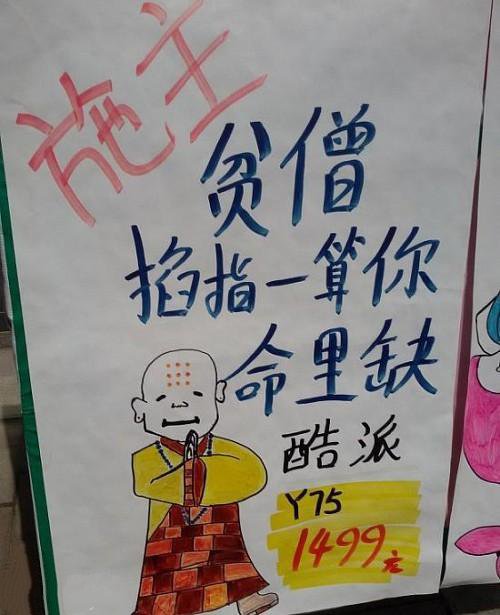 施主
贫僧
掐指一算你
命里缺
酷派
Y75
1499元